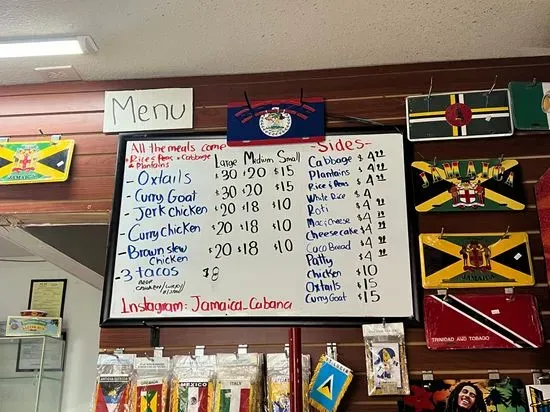 Menu
All the meals come
Rice & Peas + Cabbage
& Plantains
Large Medium Small
- Oxtails $30 $20 $15
- Curry Goat $30 $20 $15
- Jerk Chicken $20 $18 $10
- Curry Chicken $20 $18 $10
- Brown stew Chicken $20 $18 $10
3 tacos $8
Instagram: Jamaica_Cabana
-Sides-
Cabbage $4.99
Plantains $4.99
Rice & Peas $4.99
White Rice $4
Roti $4
Mac i Cheese $4.99
Cheesecake $4.99
Coco Bread $4
Patty $4.99
Chicken $10
Oxtails $15
Curry Goat $15
JAMAICA
JAMAICA
JAMAICA
TRINIDAD AND TOBAGO
GRENADA
MEXICO
ITALY